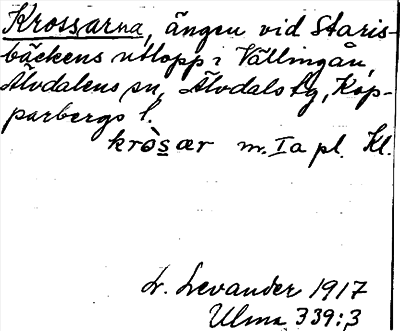 Krossarna, ängen vid Staris-
bäckens utlopp i Vällingån,
Älvdalens sn, Älvdals tg, Kop-
parbergs l.
kròsær m. Ia pl. Kl.
L. Levander 1917
Ulma 339:3